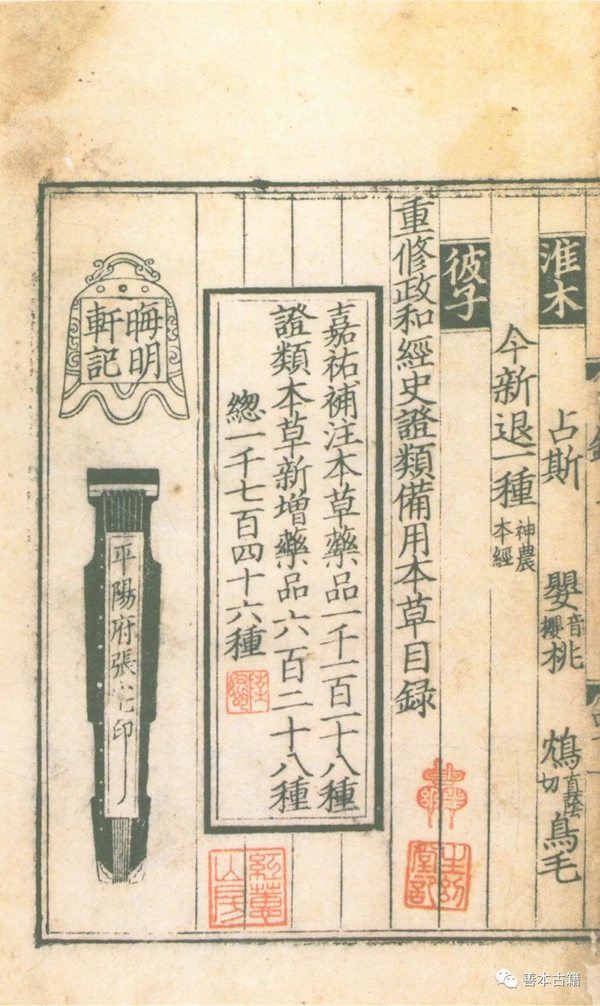 淮木　占斯　嬰音櫻桃　鴆直蔭切鳥毛
今新退一種神農本經
彼子
重修政和經史證類備用本草目録
嘉祐補注本草藥品一千一百一十八種
證類本草新增藥品六百二十八種
總一千七百四十六種
晦明
軒記
平陽府張宅印
紅蕙
山房
善本古籍